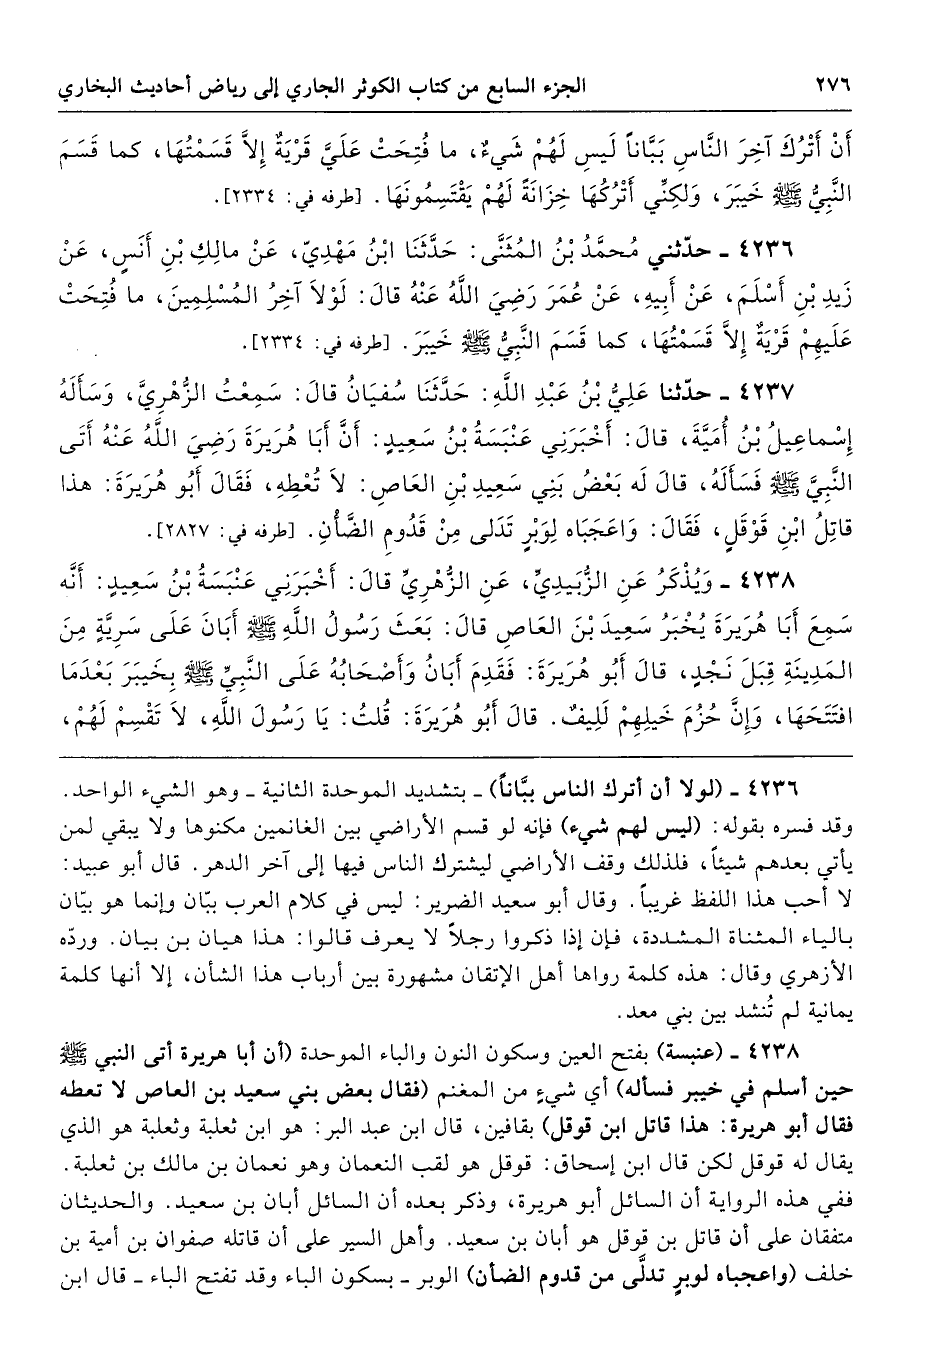 ٢٧٦ الجزء السابع من كتاب الكوثر الجاري إلى رياض أحاديث البخاري
أَنْ أَتْرُكَ آخِرَ النَّاسِ بَبَّاناً لَيسِ لَهُمْ شَيءٌ، ما فُتِحَتْ عَلَيَّ قَرْيَةٌ إِلاَّ قَسَمْتُهَا، كما قَسَمَ
النَّبِيُّ ﷺ خَيبَرَ، وَلكِنِّي أَتْرُكُهَا خِزَانَةً لَهُمْ يَقْتَسِمُونَهَا. [طرفه في: ٢٣٣٤].
٤٢٣٦ ـ حدّثني مُحمَّدُ بْنُ المُثَنَّى: حَدَّثَنَا ابْنُ مَهْدِيّ، عَنْ مالِكِ بْنِ أَنَسٍ، عَنْ
زَيدِ بْنِ أَسْلَمَ، عَنْ أَبِيهِ، عَنْ عُمَرَ رَضِيَ اللَّهُ عَنْهُ قالَ: لَوْلاَ آخِرُ المُسْلِمِينَ، ما فُتِحَتْ
عَلَيهِمْ قَرْيَةٌ إِلاَّ قَسَمْتُهَا، كما قَسَمَ النَّبِيُّ ﷺ خَيبَرَ. [طرفه في: ٢٣٣٤].
٤٢٣٧ ـ حدّثنا عَلِيُّ بْنُ عَبْدِ اللَّهِ: حَدَّثَنَا سُفيَانُ قالَ: سَمِعْتُ الزُّهْرِيَّ، وَسَأَلَهُ
إِسْماعِيلُ بْنُ أُمَيَّةَ، قالَ: أَخْبَرَنِي عَنْبَسَةُ بْنُ سَعِيدٍ: أَنَّ أَبَا هُرَيرَةَ رَضِيَ اللَّهُ عَنْهُ أَتَى
النَّبِيَّ ﷺ فَسَأَلَهُ، قالَ لَه بَعْضُ بَنِي سَعِيدِ بْنِ العَاصِ: لاَ تُعْطِهِ، فَقَالَ أَبُو هُرَيرَةَ: هذا
قاتِلُ ابْنِ قَوْقَلٍ، فَقَالَ: وَاعَجَبَاه لِوَبْرٍ تَدَلى مِنْ قَدُومِ الضَّأْنِ. [طرفه في: ٢٨٢٧].
٤٢٣٨ ـ وَيُذْكَرُ عَنِ الزُّبَيدِيِّ، عَنِ الزُّهْرِيِّ قالَ: أَخْبَرَنِي عَنْبَسَةُ بْنُ سَعِيدٍ: أَنَّه
سَمِعَ أَبَا هُرَيرَةَ يُخْبَرُ سَعِيدَ بْنَ العَاصِ قالَ: بَعَثَ رَسُولُ اللَّهِ ﷺ أَبَانَ عَلَى سَرِيَّةٍ مِنَ
المَدِينَةِ قِبَلَ نَجْدٍ، قالَ أَبُو هُرَيرَةَ: فَقَدِمَ أَبَانُ وَأَصْحَابُهُ عَلَى النَّبِيِّ ﷺ بِخَيبَرَ بَعْدَمَا
افتَتَحَهَا، وَإِنَّ حُزُمَ خَيلِهِمْ لَلِيفٌ. قالَ أَبُو هُرَيرَةَ: قُلتُ: يَا رَسُولَ اللَّهِ، لاَ تَقْسِمْ لَهُمْ،
٤٢٣٦ ـ (لولا أن أترك الناس ببَّاناً) ـ بتشديد الموحدة الثانية ـ وهو الشيء الواحد.
وقد فسره بقوله: (ليس لهم شيء) فإنه لو قسم الأراضي بين الغانمين مكنوها ولا يبقي لمن
يأتي بعدهم شيئاً، فلذلك وقف الأراضي ليشترك الناس فيها إلى آخر الدهر. قال أبو عبيد:
لا أحب هذا اللفظ غريباً. وقال أبو سعيد الضرير: ليس في كلام العرب ببّان وإنما هو بيّان
بالياء المثناة المشددة، فإن إذا ذكروا رجلاً لا يعرف قالوا: هذا هيان بن بيان. وردّه
الأزهري وقال: هذه كلمة رواها أهل الإتقان مشهورة بين أرباب هذا الشأن، إلا أنها كلمة
يمانية لم تُنشد بين بني معد.
٤٢٣٨ ـ (عنبسة) بفتح العين وسكون النون والباء الموحدة (أن أبا هريرة أتى النبي ﷺ
حين أسلم في خيبر فسأله) أي شيءٍ من المغنم (فقال بعض بني سعيد بن العاص لا تعطه
فقال أبو هريرة: هذا قاتل ابن قوقل) بقافين، قال ابن عبد البر: هو ابن ثعلبة وثعلبة هو الذي
يقال له قوقل لكن قال ابن إسحاق: قوقل هو لقب النعمان وهو نعمان بن مالك بن ثعلبة.
ففي هذه الرواية أن السائل أبو هريرة، وذكر بعده أن السائل أبان بن سعيد. والحديثان
متفقان على أن قاتل بن قوقل هو أبان بن سعيد. وأهل السير على أن قاتله صفوان بن أمية بن
خلف (واعجباه لوبرٍ تدلَّى من قدوم الضأن) الوبر ـ بسكون الباء وقد تفتح الباء ـ قال ابن